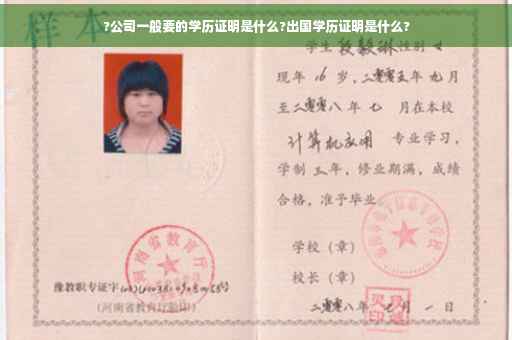 ?公司一般要的学历证明是什么?出国学历证明是什么?
样本
河南省教育厅
豫教职专证字
(河南省教育厅验印)
学生 段毅琳 性别 女
现年 16 岁,二零零五年 九月
至二零零八年 七 月在本校
计算机应用 专业学习,
学制 三 年,修业期满,成绩
合格,准予毕业
学校(章)
校长(章)
二零零八年 七 月 一 日